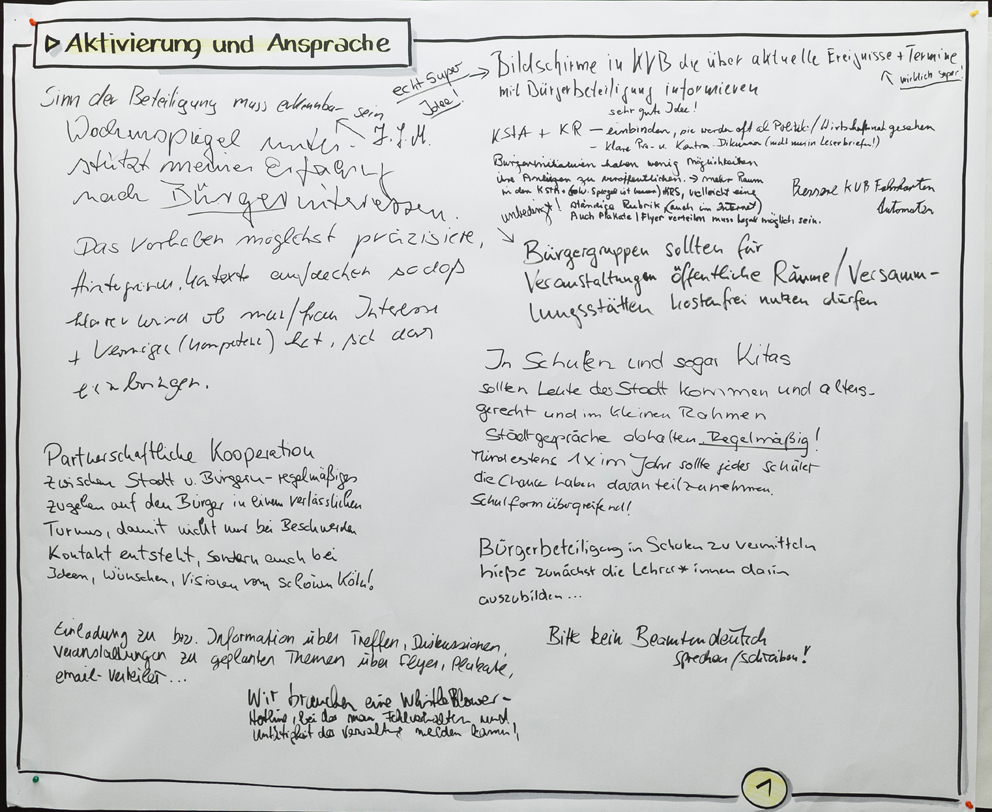 ▷ Aktivierung und Ansprache
Sinn der Beteiligung muss erkennbar sein
Wochenspiegel unter-
stützt meiner Erfahrung
nach Bürgerinteressen.
Das Vorhaben möglichst präzisieren,
Hintergrund, Kontext aufdecken sodaß
klarer wird ob man/frau Interesse
+ Vermögen (Kompetenz) hat, sich darin
einbringen.
Partnerschaftliche Kooperation
zwischen Stadt u. Bürgern - regelmäßiges
zugehen auf den Bürger in einem verlässlichen
Turnus, damit nicht nur bei Beschwerden
Kontakt entsteht, sondern auch bei
Ideen, Wünschen, Visionen vom schönen Köln!
Einladung zu bzw. Information über Treffen, Diskussionen,
Veranstaltungen zu geplanten Themen über Flyer, Plakate,
email-Verteiler...
Wir brauchen eine WhistleBlower-
Hotline, bei der man Fehlverhalten und
Untätigkeit der Verwaltung melden kann!
echt super
Idee!
Bildschirme in KVB die über aktuelle Ereignisse + Termine
mit Bürgerbeteiligung informieren
wirklich super!
sehr gute Idee!
KStA + KR – einbinden, sie werden oft als Politik-/Wirtschaftsnah gesehen
- klare Pro- u. Kontra-Diskussion (nicht nur in Leserbriefen!)
Bürgerinitiativen haben wenig Möglichkeiten
ihre Anliegen zu veröffentlichen. → mehr Raum
in den KStA + KRS, vielleicht eine
ständige Rubrik (auch im Internet)
Auch Plakate/Flyer verteilen muss legal möglich sein.
KVB Fahrkarten
Automaten
unbedingt!
Bürgergruppen sollten für
Veranstaltungen öffentliche Räume/Versamm-
lungsstätten kostenfrei nutzen dürfen
In Schulen und sogar Kitas
sollten Leute der Stadt kommen und alters-
gerecht und im kleinen Rahmen
Stadtgespräche abhalten. Regelmäßig!
Mindestens 1x im Jahr sollte jeder Schüler
die Chance haben daran teilzunehmen.
Schulformübergreifend!
Bürgerbeteiligung in Schulen zu vermitteln
hieße zunächst die Lehrer*innen darin
auszubilden...
Bitte kein Beamtendeutsch
sprechen/schreiben!
1